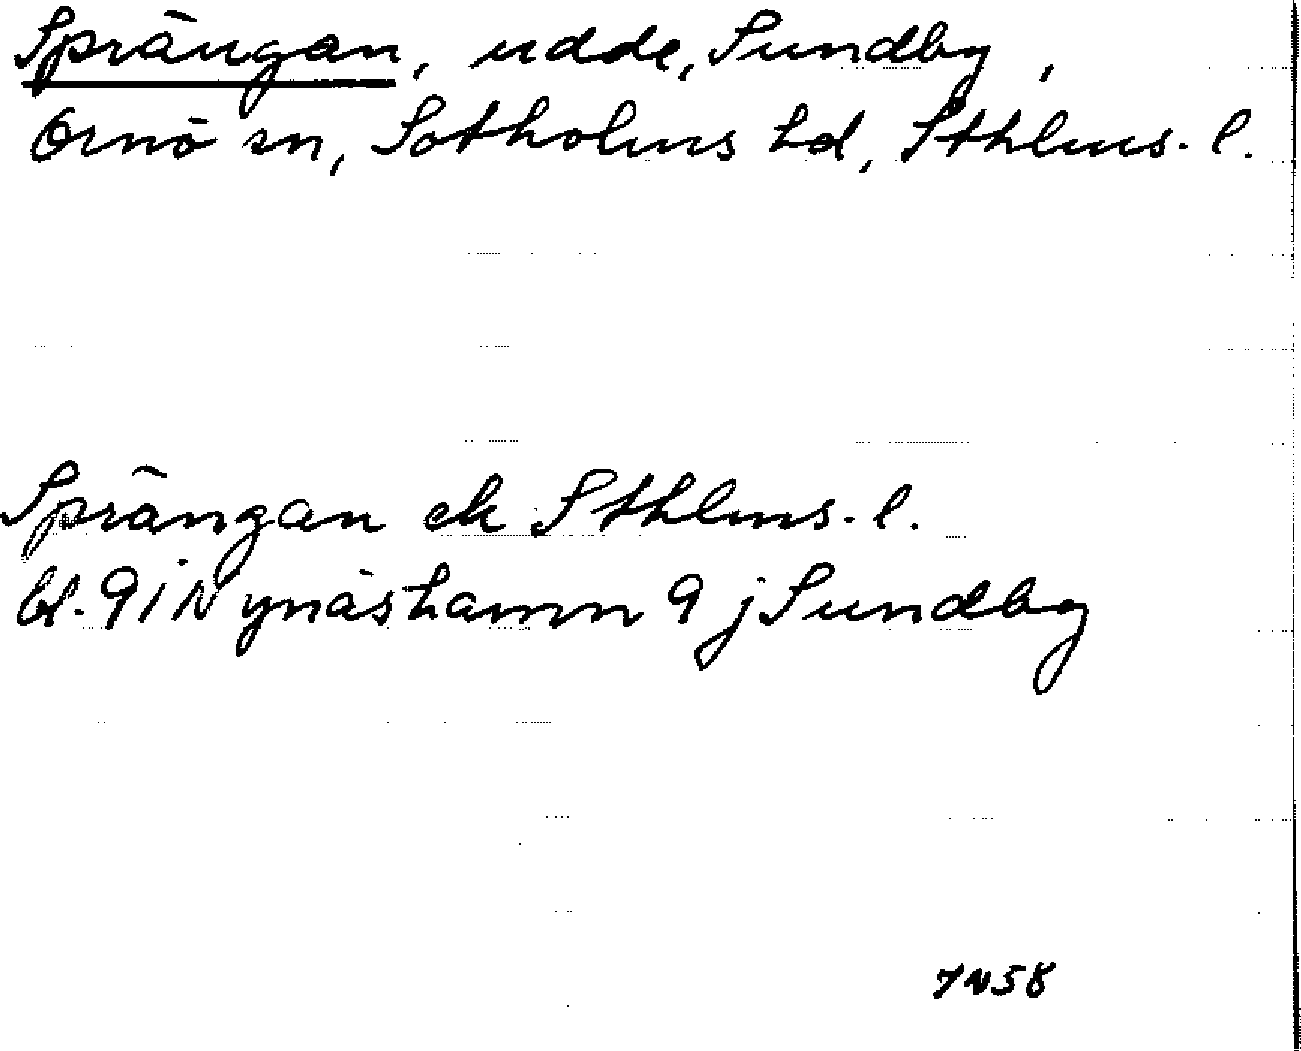 Sprängan, udde, Sundby,
Ornö sn, Sotholms hd, Sthlms. l.
Sprängan ek Sthlms. l.
bl. 9 i Nynäshamn 9 j Sundby
7N58